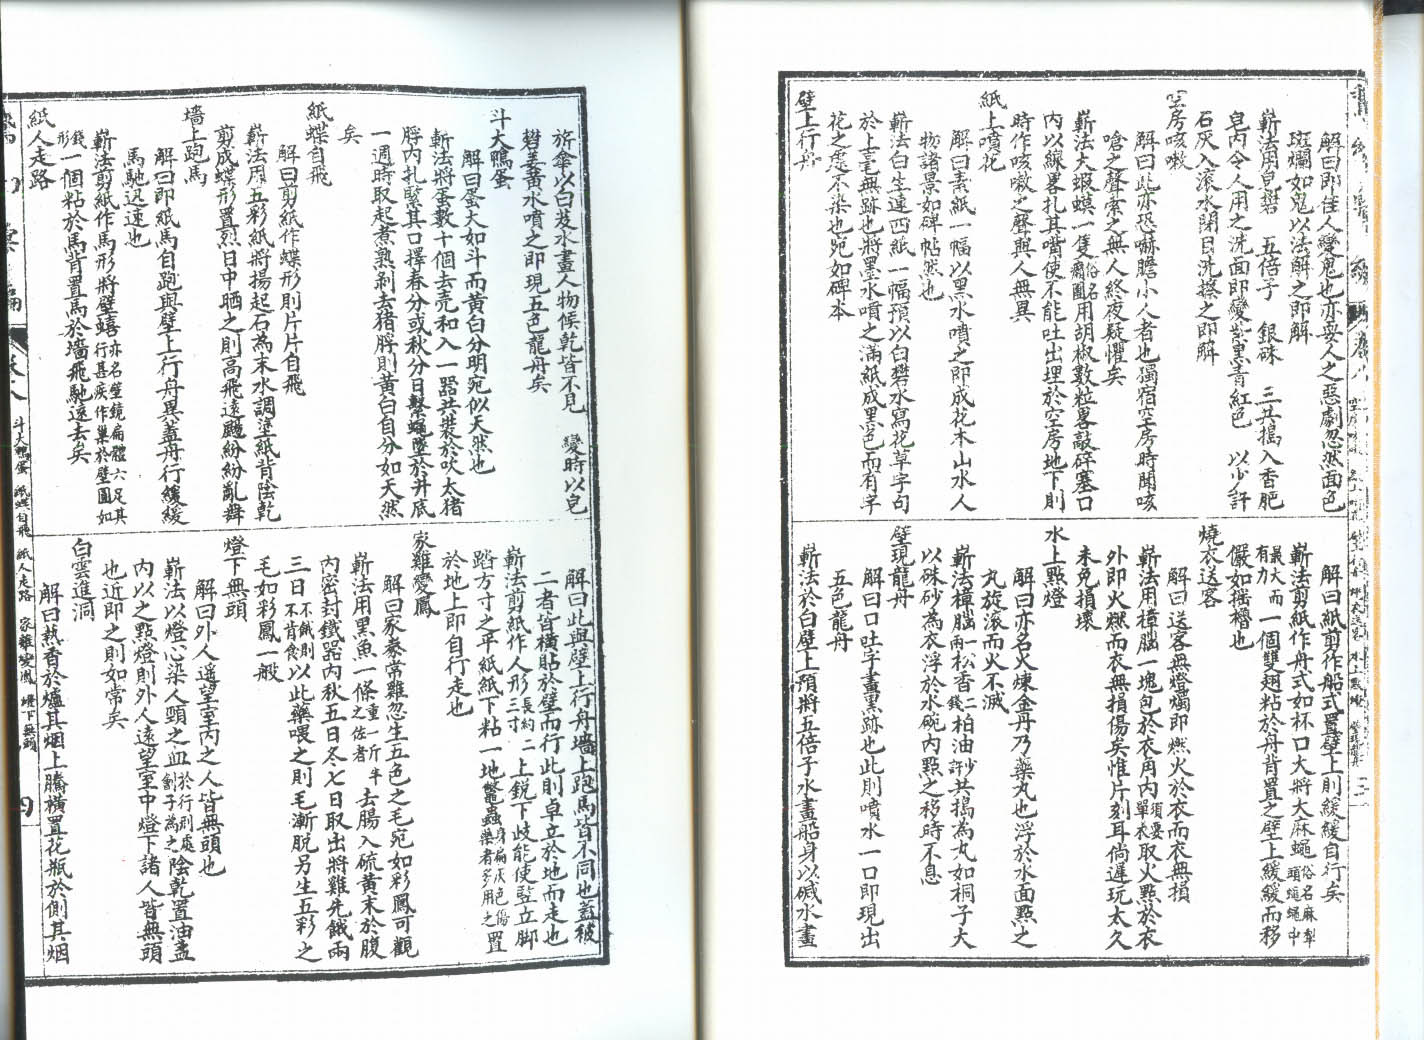 解曰即佳人變鬼也亦耍人之惡劇忽然面色
斑斕如鬼以法解之即解
嶄法用皂礬 五倍子 銀硃 三共搗入香肥
皂內令人用之洗面即變紫黑青紅色 以少許
石灰入滾水閉目洗擦之即解
空房咳嗽
解曰此亦恐嚇膽小人者也獨宿空房時聞咳
嗆之聲索之無人終夜疑懼矣
嶄法大蝦蟆一隻俗名癩團用胡椒數粒畧敲碎塞口
內以線畧扎其嘴使不能吐出埋於空房地下則
時作咳嗽之聲與人無異
紙上噴花
解曰素紙一幅以黑水噴之即成花木山水人
物諸景如碑帖然也
嶄法白生連四紙一幅預以白礬水寫花草字句
於上毫無跡也將墨水噴之滿紙成黑色而有字
花之處不染也宛如碑本
壁上行舟
解曰紙剪作船式置壁上則緩緩自行矣
嶄法剪紙作舟式如杯口大將大麻蠅俗名麻犁頭蠅蠅中
最大而有力一個雙翅粘於舟背置之壁上緩緩而移
儼如搖櫓也
燒衣送客
解曰送客無燈燭即燃火於衣而衣無損
嶄法用樟腦一塊包於衣角內須要單衣取火點於衣
外即火燃而衣無損傷矣惟片刻耳倘遲玩太久
未免損壞
水上點燈
解曰亦名火煉金丹乃藥丸也浮於水面點之
丸旋滾而火不滅
嶄法樟腦一兩松香二錢柏油少許共搗為丸如桐子大
以硃砂為衣浮於水碗內點之移時不息
壁現龍舟
解曰口吐字畫黑跡也此則噴水一口即現出
五色龍舟
嶄法於白壁上預將五倍子水畫船身以鹻水畫
旂傘以白芨水畫人物候乾皆不見 變時以皂
礬姜黃水噴之即現五色龍舟矣
斗大鴨蛋
解曰蛋大如斗而黃白分明宛似天然也
嶄法將蛋數十個去壳和入一器共裝於吹大猪
脬內扎緊其口擇春分或秋分日繫繩墜於井底
一週時取起煮熟剝去猪脬則黃白自分如天然
矣
紙蝶自飛
解曰剪紙作蝶形則片片自飛
嶄法用五彩紙將揚起石為末水調塗紙背陰乾
剪成蝶形置烈日中晒之則高飛遠颺紛紛亂舞
墙上跑馬
解曰即紙馬自跑與壁上行舟異蓋舟行緩緩
馬馳迅速也
嶄法剪紙作馬形將壁蟢亦名壁鏡扁體六足其行甚疾作巢於壁圓如
錢形一個粘於馬背置馬於墻飛馳遠去矣
紙人走路
解曰此與壁上行舟墻上跑馬皆不同也蓋彼
二者皆橫貼於壁而行此則卓立於地而走也
嶄法剪紙作人形長約三寸二上銳下歧能使豎立脚
踏方寸之平紙紙下粘一地鱉蟲身扁灰色傷藥者多用之置
於地上即自行走也
家雞變鳳
解曰家豢常雞忽生五色之毛宛如彩鳳可觀
嶄法用黑魚一條重一斤半之佐者去腸入硫黃末於腹
內密封鐵器內秋五日冬七日取出將雞先餓兩
三日不餓則不肯食以此藥喂之則毛漸脫另生五彩之
毛如彩鳳一般
燈下無頭
解曰外人遥望室內之人皆無頭也
嶄法以燈心染人頭之血於行刑處劊子為之陰乾置油盞
內以之點燈則外人遠望室中燈下諸人皆無頭
也近即之則如常矣
白雲進洞
解曰熱香於爐其烟上騰橫置花瓶於側其烟
斗大鴨蛋 紙蝶自飛 紙人走路 家雞變鳳 燈下無頭
四